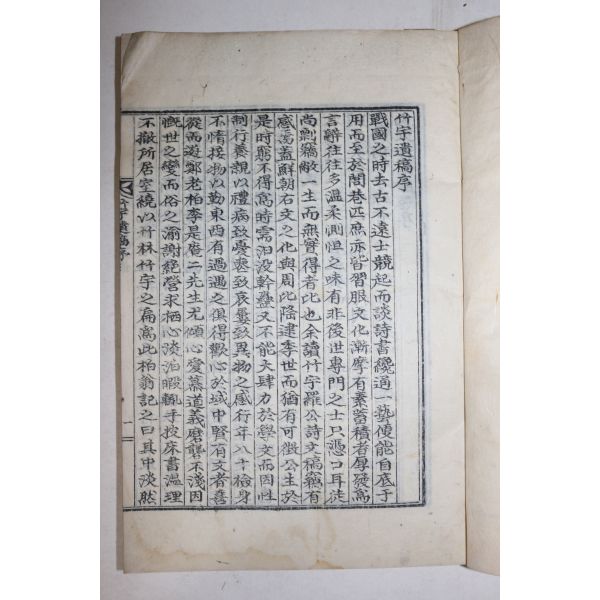 竹宇遺稿序
戰國之時去古不遠士競起而談詩書纔通一藝便能自底于
用而至於閭巷匹庶亦皆習服文化漸摩有素蓄積者厚發爲
言辭往往多溫柔惻怛之味有非後世專門之士只憑口耳徒
尚剽竊敝一生而無實得者比也余讀竹宇羅公詩文稿竊有
感焉盖鮮朝右文之化與周比隆逮季世而猶有可徵公生於
是時窮不得爲時需汨沒幹蠱又不能大肆力於學文而因性
制行養親以禮病致憂喪致哀屢致異物之感行年八十檢身
不惰接物以勤東西有過遇之俱得歡心於域中賢有文者喜
從而遊鄭老柏李是菴二先生尤傾心愛慕道義磨礱不淺因
慨世之變而俗之渝謝絕營求栖心淡泊暇輒手按床書溫理
不撤所居室繞以竹林竹宇之扁爲此柏翁記之曰其中淡然
竹宇遺稿序
一